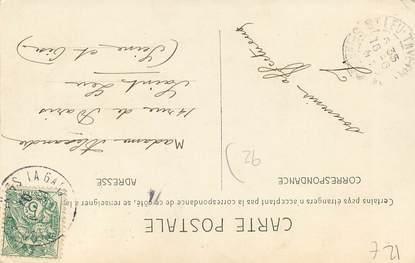 CARTE POSTALE
Certains pays étrangers n'acceptant pas la correspondance de ce côté, se renseigner à la
CORRESPONDANCE
ADRESSE
souvenir
affectueux
Madame Alexandre
14 rue de Paris
Saint Leu
(Seine et Oise)
92)
12 F